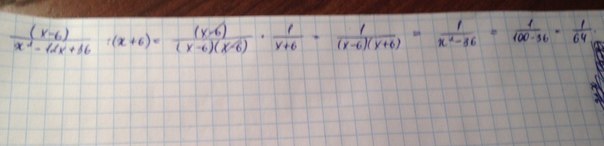 (x-6)/(x²-12x+36) : (x+6) = (x-6)/((x-6)(x-6)) · 1/(x+6) = 1/((x-6)(x+6)) = 1/(x²-36) = 1/(100-36) = 1/64.